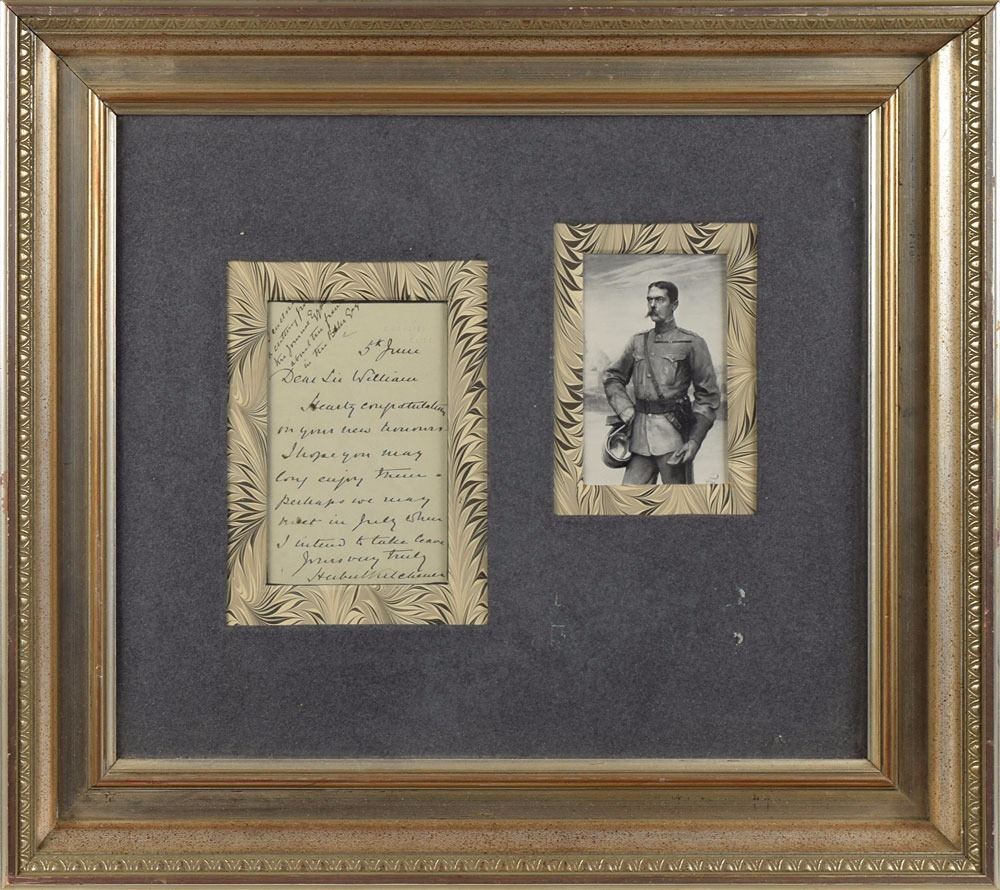 a cutting from
the Journal Egypt
about
in the
5th June
Dear Sir William
Hearty congratulations
on your new honours
I hope you may
long enjoy them -
Perhaps we may
meet in July when
I intend to take leave
Yours very truly
Herbert Kitchener